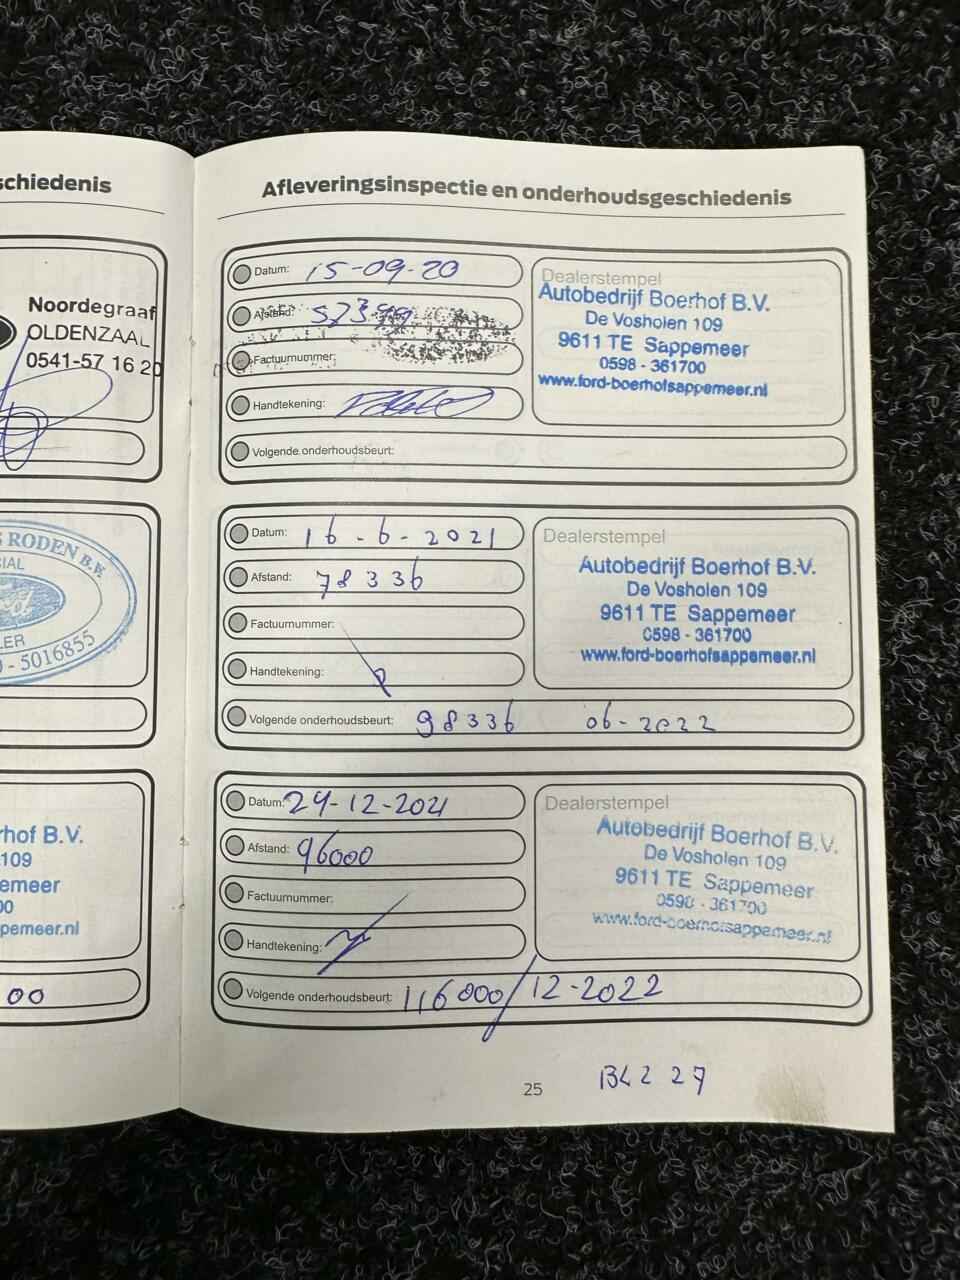 schiedenis
Noordegraaf
OLDENZAAL
0541-57 16 20
S RODEN B.V.
CIAL
LER
0 - 5016855
rhof B.V.
109
emeer
00
pemeer.nl
00
Afleveringsinspectie en onderhoudsgeschiedenis
Datum: 15-09-20
Afstand:
Factuurnummer:
Handtekening:
Volgende onderhoudsbeurt:
Dealerstempel
Autobedrijf Boerhof B.V.
De Vosholen 109
9611 TE Sappemeer
0598 - 361700
www.ford-boerhofsappemeer.nl
Datum: 16-6-2021
Afstand: 78336
Factuurnummer:
Handtekening:
Volgende onderhoudsbeurt: 98336 06-2022
Dealerstempel
Autobedrijf Boerhof B.V.
De Vosholen 109
9611 TE Sappemeer
0598 - 361700
www.ford-boerhofsappemeer.nl
Datum: 24-12-2021
Afstand: 96000
Factuurnummer:
Handtekening:
Volgende onderhoudsbeurt: 116000/12-2022
Dealerstempel
Autobedrijf Boerhof B.V.
De Vosholen 109
9611 TE Sappemeer
0598 - 361700
www.ford-boerhofsappemeer.nl
25